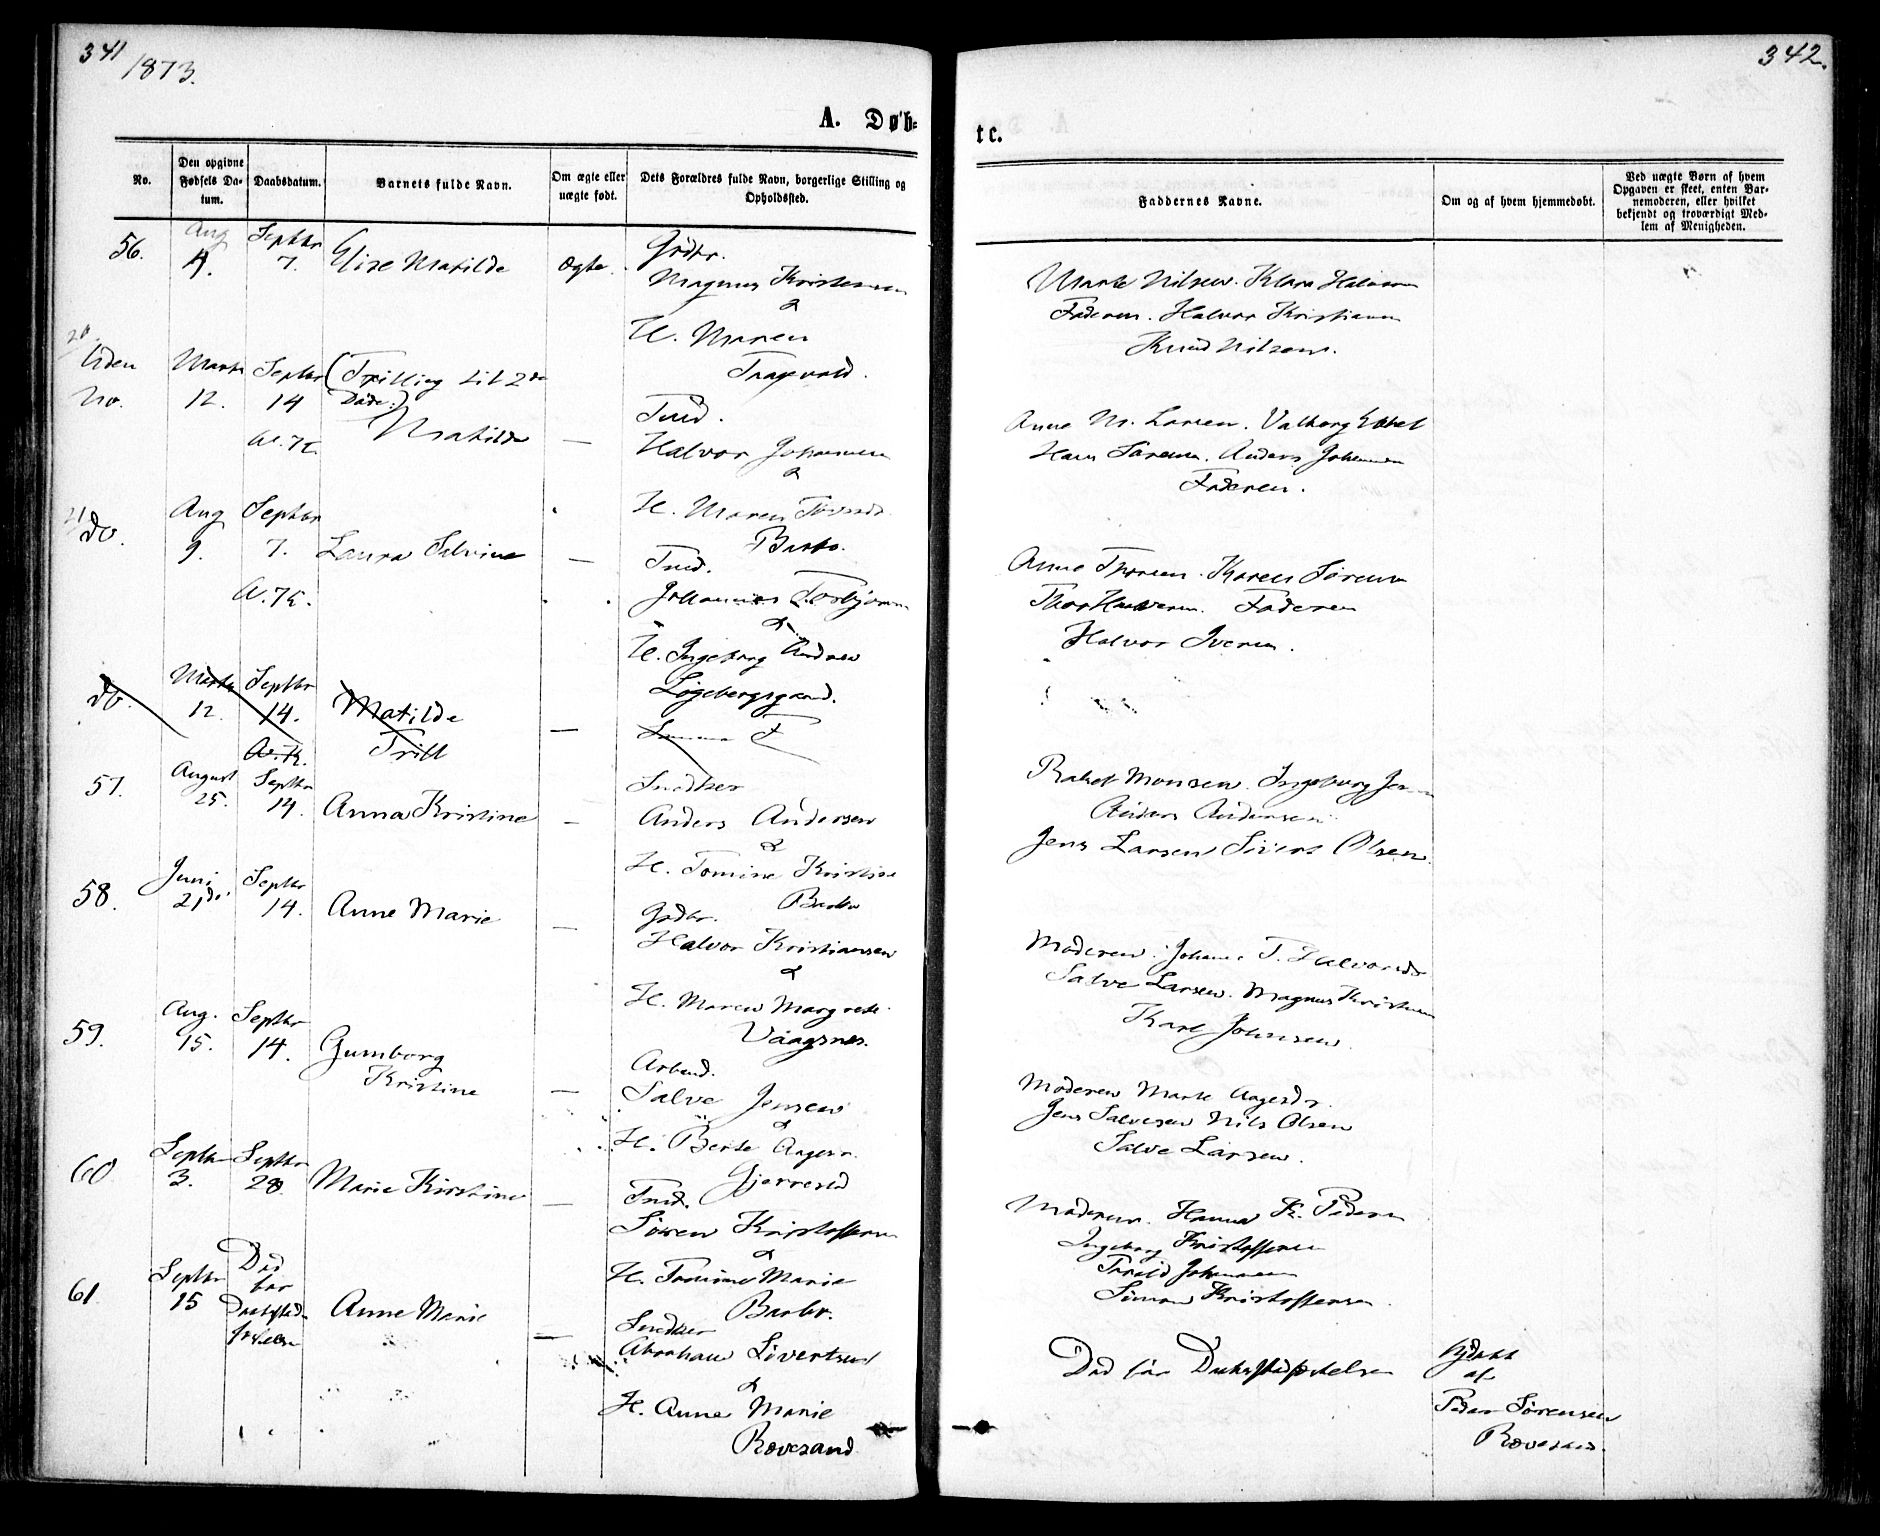 341
1873.
342.
A. Døb=
tc.
No.
Den opgivne Fødsels Da-tum.
Daabsdatum.
Barnets fulde Navn.
Om ægte eller uægte født.
Dets Forældres fulde Navn, borgerlige Stilling og Opholdssted.
Faddernes Navne.
Om og af hvem hjemmedøbt.
Ved uægte Børn af hvem Opgaven er skeet, enten Bar-nemoderen, eller hvilket bekjendt og troværdigt Med-lem af Menigheden.
56.
Aug 4.
Septbr 7.
Elise Matilde
Ægte.
Grdbr.
Magnus Kristensen
&
H. Maren
Marte Nilsen. Klara
Faderen. Halvor Kristiansen
Knud Nilsen.
20.
Uden No.
Marts 12.
Septbr 14
(Trilling til 2de Døde.)
Matilde
—
Tmd.
Halvor Johansen
&
H. Maren
Barbo.
Anne M. Larsen. Valborg
Hans Larsen. Anders Johannesen
Faderen.
21
do.
Aug 9.
Septbr 7.
Laura Silvine
—
Tmd.
Johannes Torbjørnsen
&
H. Ingeborg
Løgebergsgaard.
Anne Thorsen. Karen Sørensen
Thor Halvorsen. Faderen
Halvor Iversen.
do.
Marts 12.
Septbr 14.
Matilde
Trill
—
57.
August 25.
Septbr 14.
Anna Kristine
—
Snedker
Anders Andersen
&
H. Tomine Kristine
Barbo
Rakel Monsen. Ingeborg
Anders Andersen
Jens Larsen Sivert Olsen.
58.
Juni 21de
Septbr 14.
Anne Marie
—
Grdbr.
Halvor Kristiansen
&
H. Maren Margrete
Vaagsnes.
Moderen. T. Halvorsdr
Salve Larsen. Magnus Kristensen
Karl Johnsen.
59.
Aug. 15.
Septbr 14.
Gumborg
Kristine
—
Arbmd.
Salve Jensen
&
H. Berte Aagesdr.
Moderen Marte Aagesdr.
Jens Salvesen Nils Olsen
Salve Larsen.
60
Septbr 3.
Septbr 28.
Marie Kirstine
—
Tmd.
Søren Kristoffersen
&
H. Tomine Marie
Barbo.
Moderen. Hanna K. Pedersen
Ingeborg Kristoffersen
Simon Kristoffersen.
61.
Septbr 15
Død før Daabsstadfæstelsen
Anne Marie
—
Snedker
Abraham Sivertsen
&
H. Anne Marie
Rævesand.
Død før Daabsstadfæstelsen
Hjdøbt
af
Peder Sørensen
Rævesand.